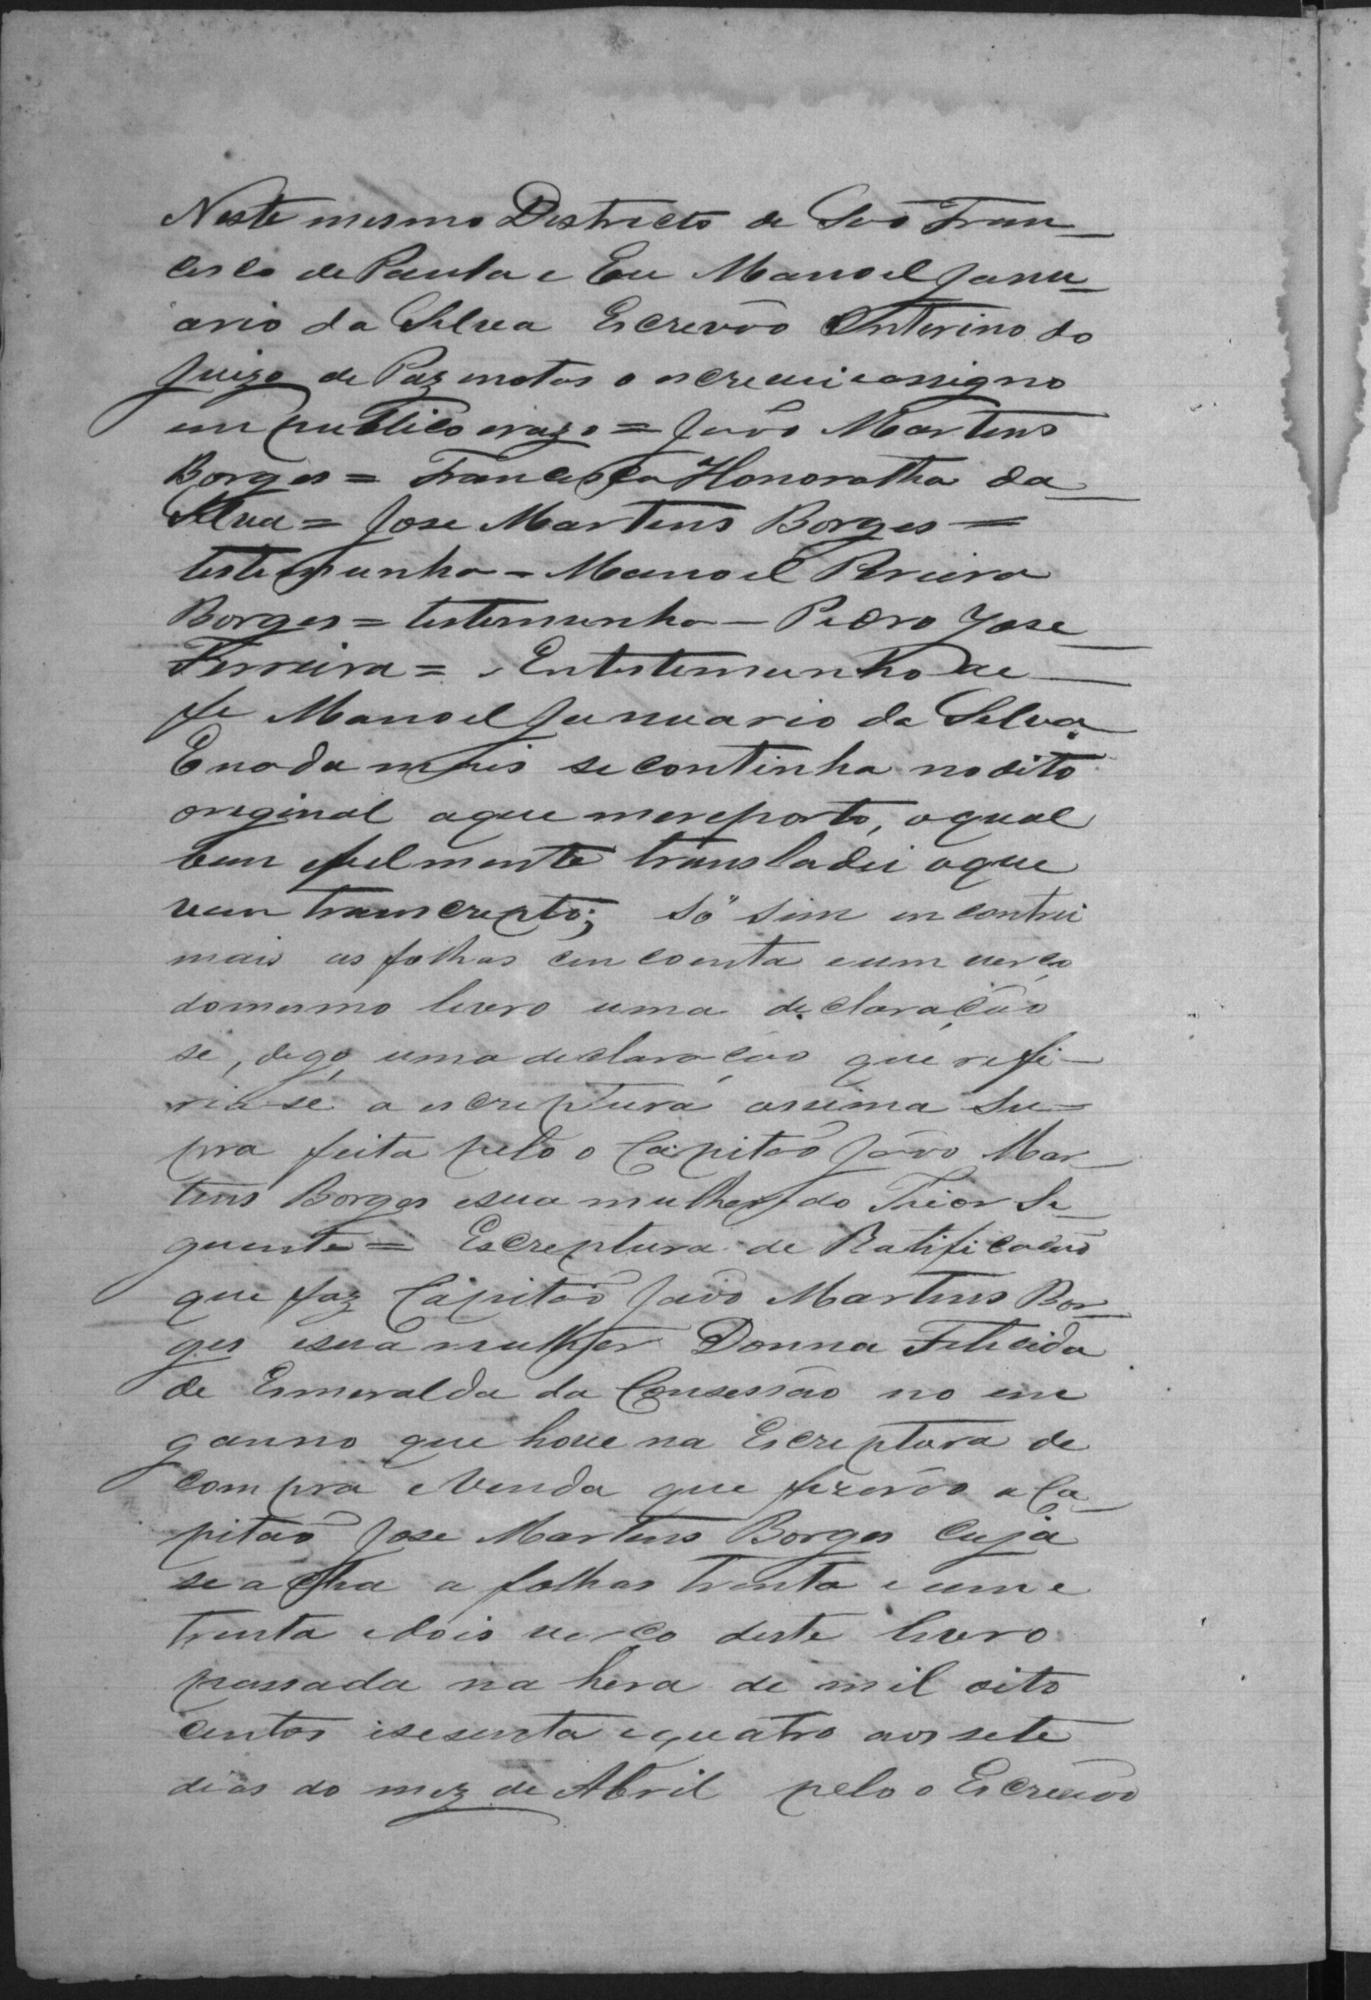 Neste mesmo Destricto de São Fran_
cisco de Paula e Eu Manoel Janu_
ario da Silva Escrevão Enterino do
Juizo de Paz enotas o escrevi e assigno
em publico erazo = João Martins
Borges = Francisca Honoratha da
Silva = Jose Martins Borges =
testemunha - Manoel Pereira
Borges = testemunha - Pedro Jose
Ferreira = Entestemunho de
fe Manoel Januario da Silva.
Enada mais se continha nodito
original aque mereporto, oqual
bem efielmente transladei oque
vem transcrepto; só sim encontrei
mais as folhas cincoenta eum verço
domesmo livro uma declaração
se, dego, uma declaração que refi-
ria-se a escreptura assima Su=
pra feita pelo o Capitão João Mar_
tins Borges esua mulher do Theor Se_
guente = Escreptura de Ratificacão
que faz Capitão João Martins Bor_
ges esua mulher Donna Felicida
de Esmeralda da Consessão no en
ganno que houe na Escreptura de
compra eVenda que fizerão a Ca_
pitão Jose Martins Borges Cuja
se acha a folhas trinta e um e
trinta edois verço deste livro
passada na hera de mil oito
centos esesenta equatro aos sete
dias do mez de Abril pelo o Escrevão